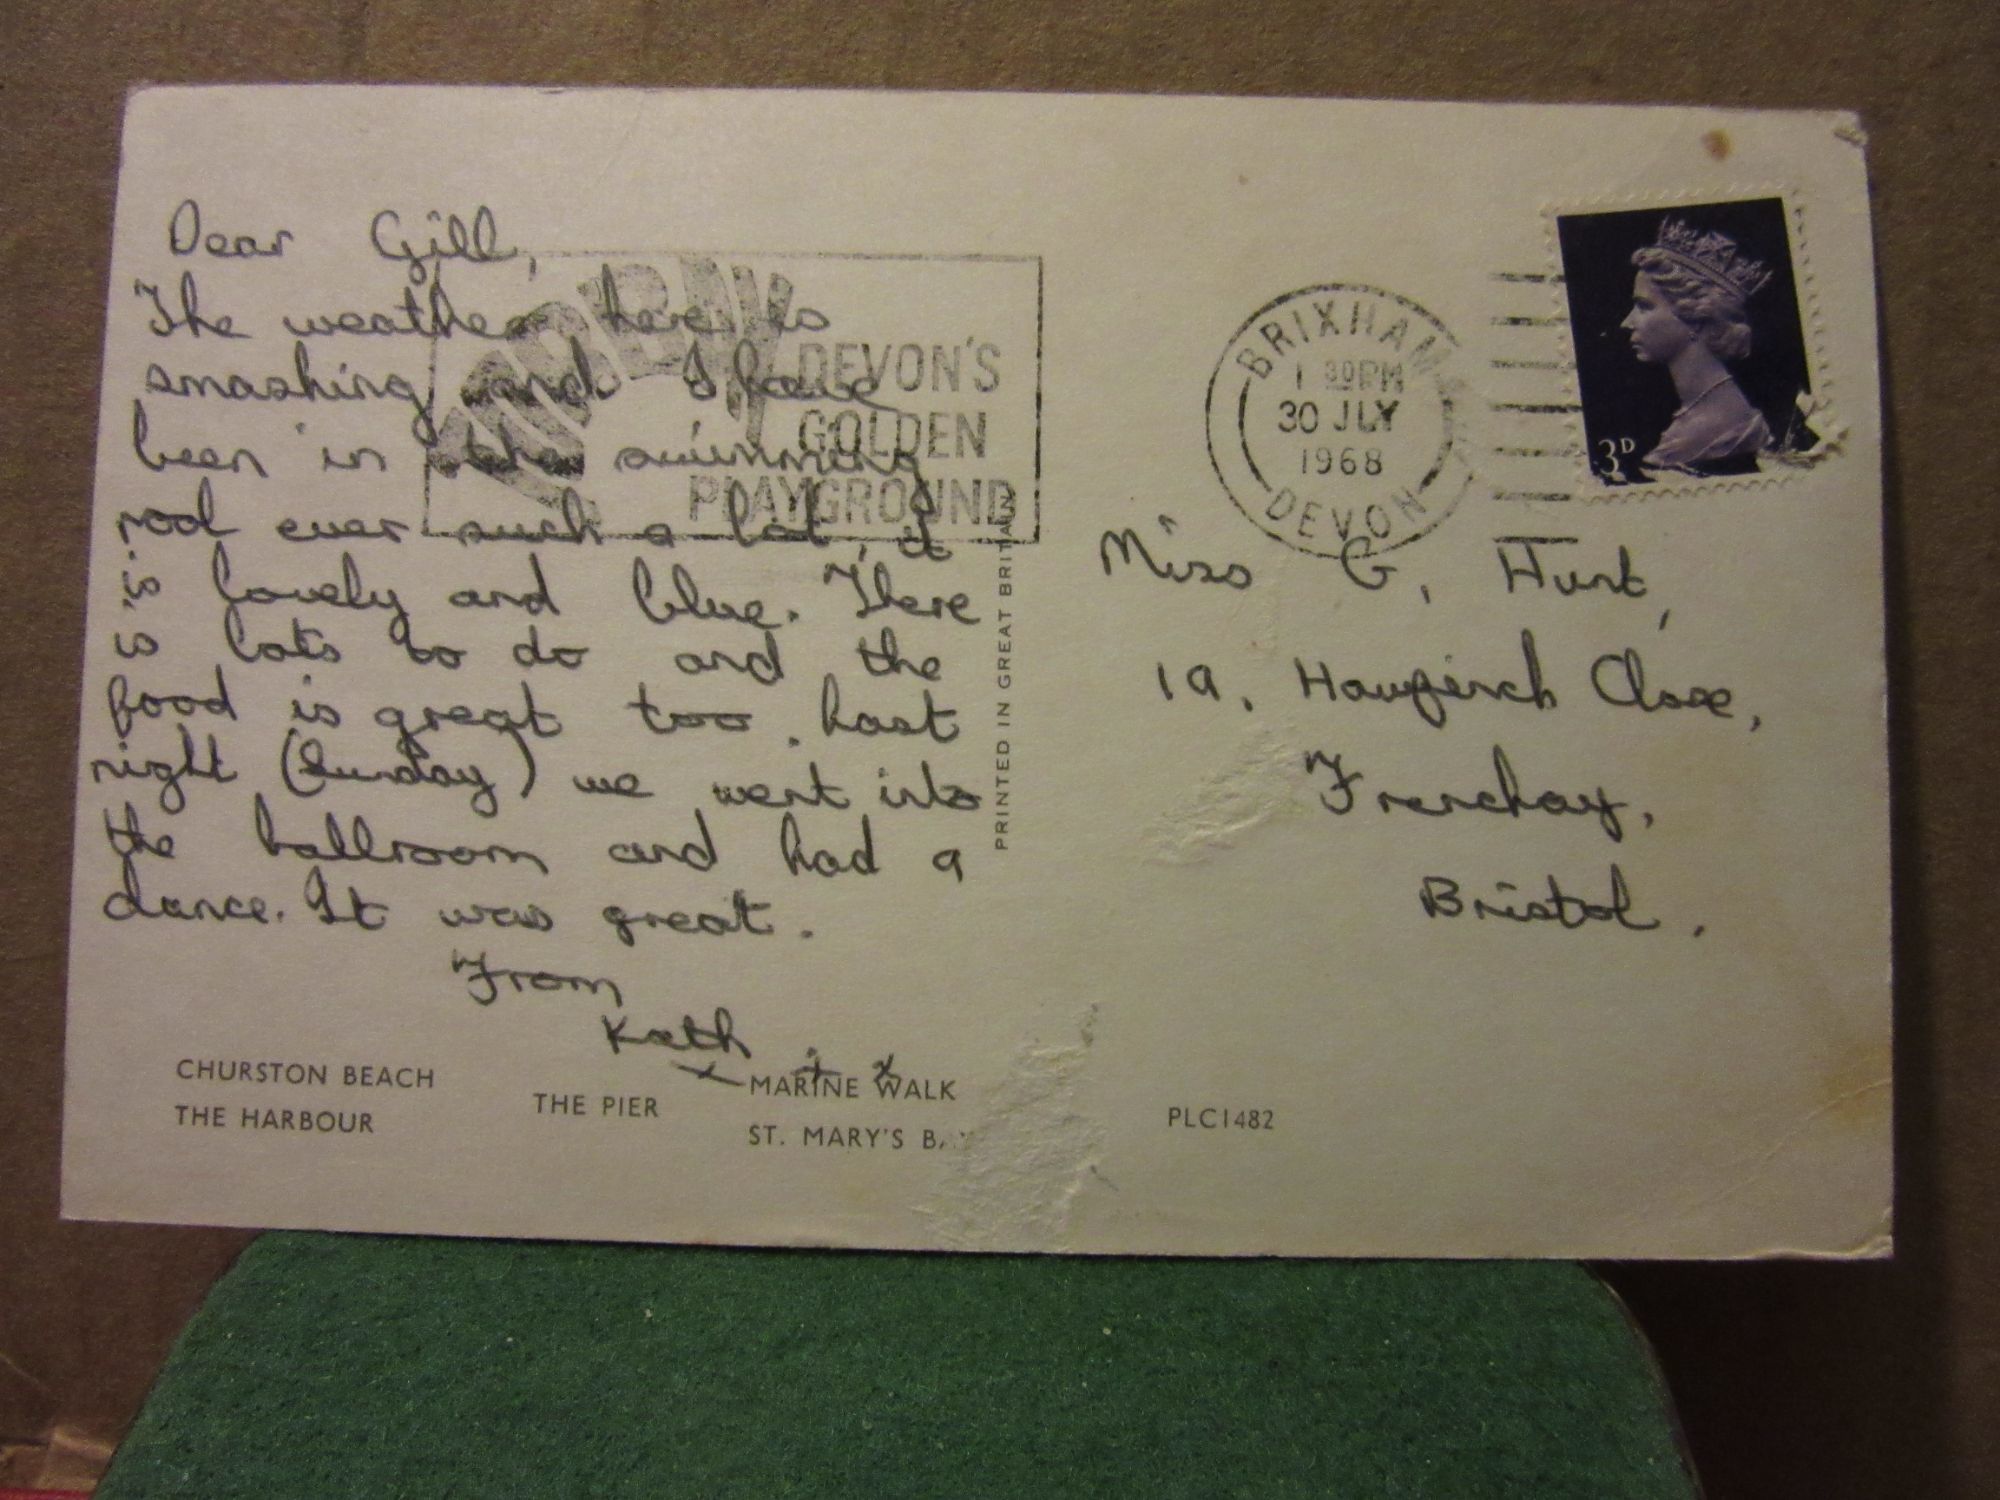 Dear Gill,
The weather here is
smashing and I have
been in the swimming
pool ever such a lot, it
is lovely and blue. There
is lots to do and the
food is great too. Last
night (Sunday) we went into
the ballroom and had a
dance. It was great.
From
Kath
x x x
TORBAY
DEVON'S
GOLDEN
PLAYGROUND
PRINTED IN GREAT BRITAIN
CHURSTON BEACH
THE HARBOUR
THE PIER
MARINE WALK
ST. MARY'S BAY
BRIXHAM
1 30PM
30 JLY
1968
DEVON
3D
Miss G. Hunt,
19, Hawfinch Close,
Frenchay,
Bristol.
PLC1482